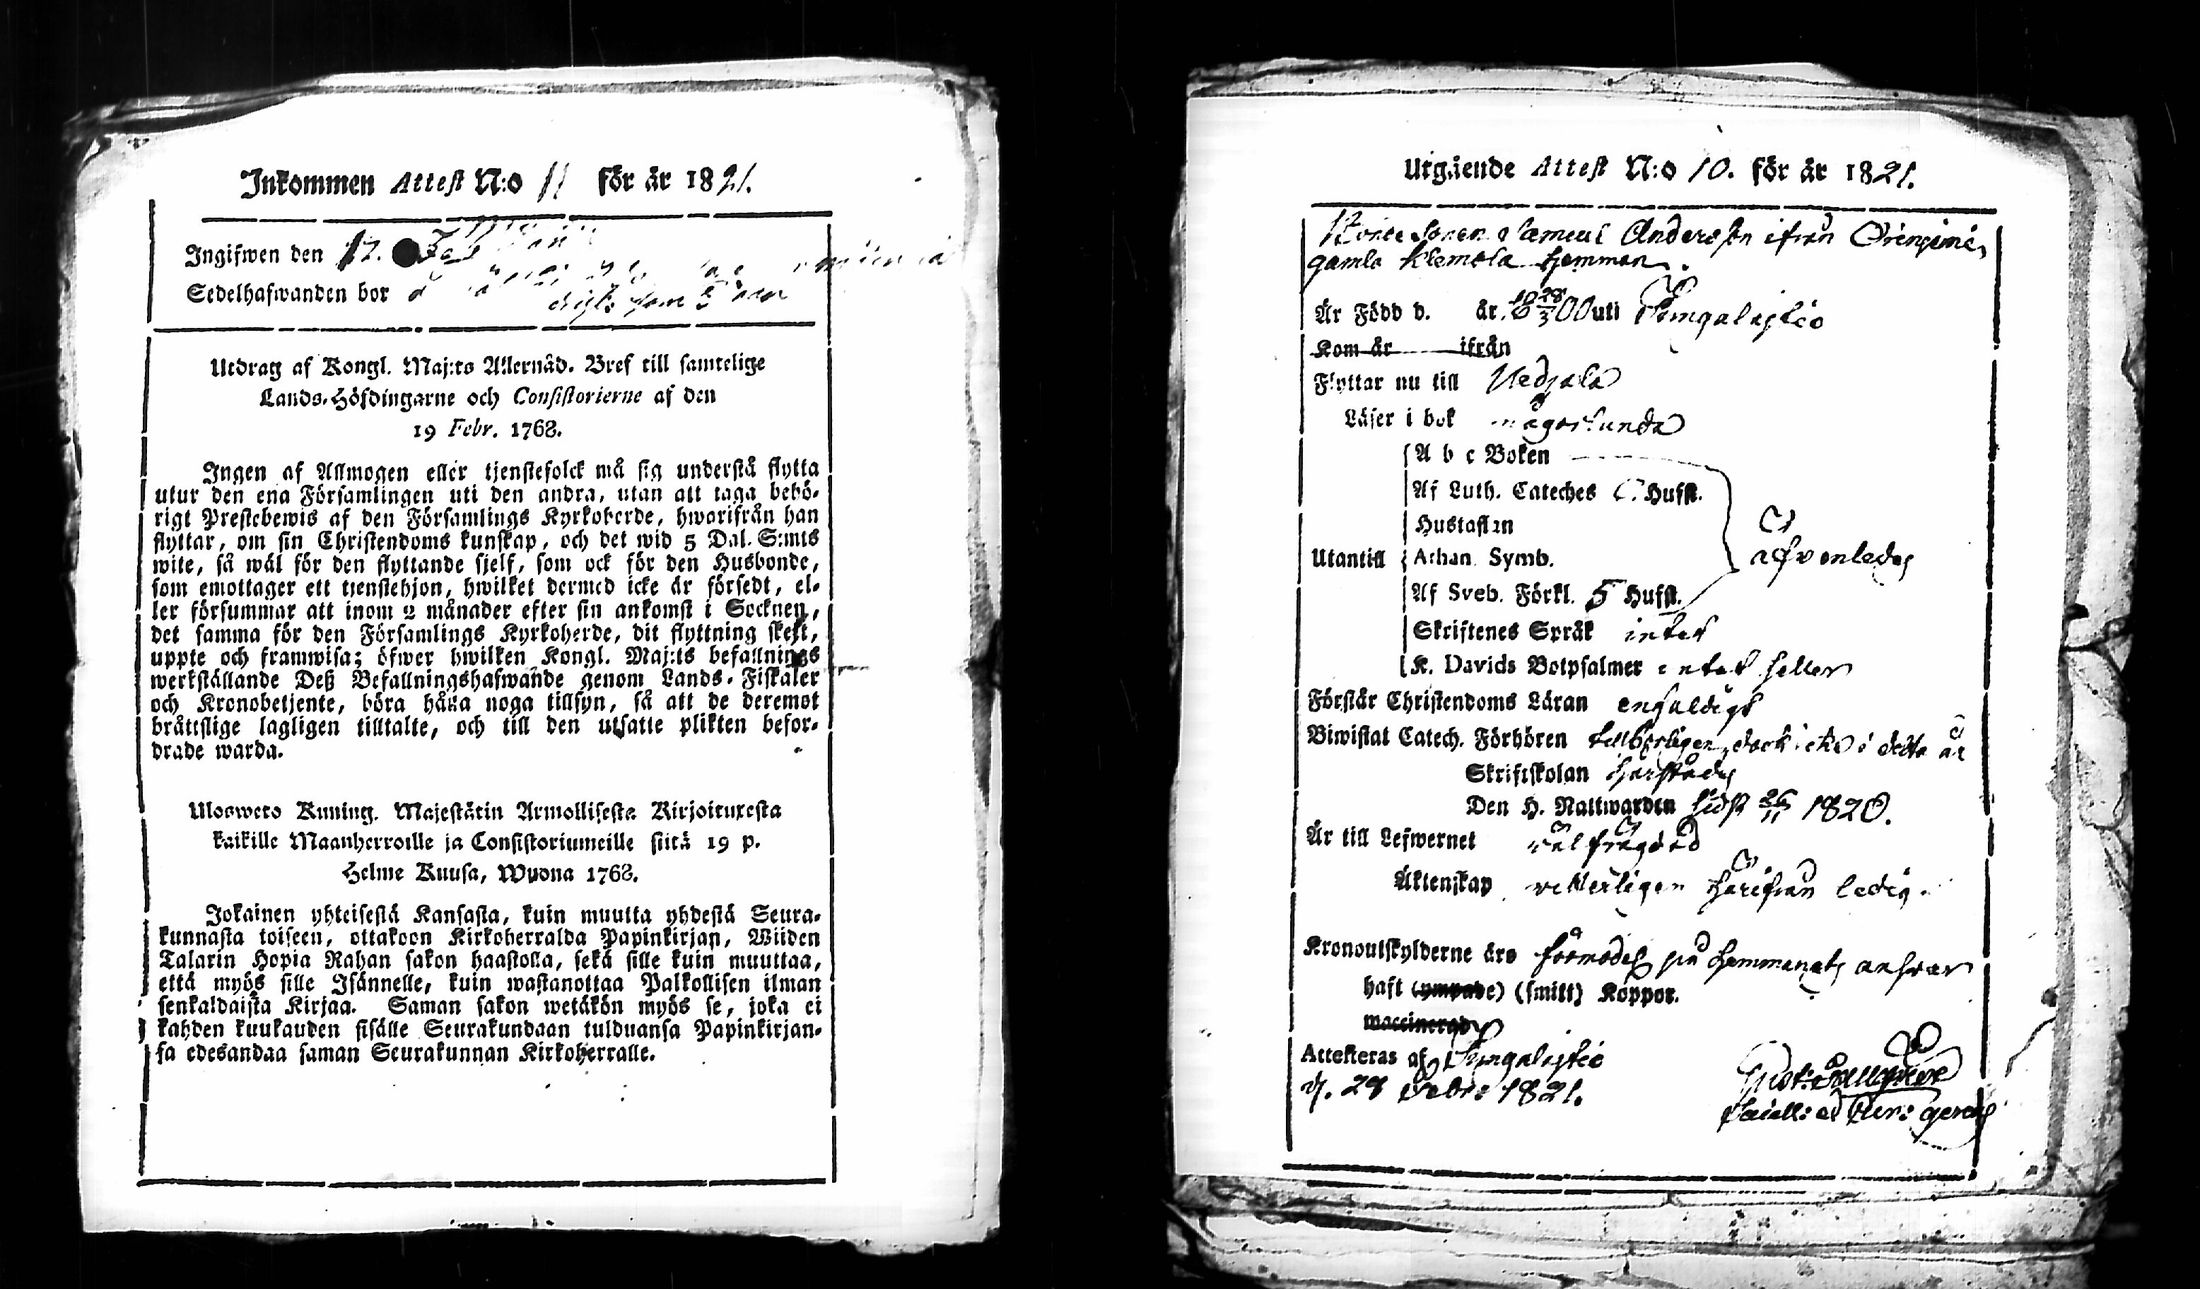 Inkommen Attest N:o 11 för år 1821.
Ingifwen den 17.
Sedelhafwanden bor
Utdrag af Kongl. Maj:ts Allernåd. Bref till samtelige
Lands-Höfdingarne och Consistorierne af den
19 Febr. 1768.
Ingen af Allmogen eller tjenstefolck må sig understå flytta
utur den ena Församlingen uti den andra, utan att taga behö-
rigt Prestebewis af den Församlings Kyrkoherde, hwarifrån han
flyttar, om sin Christendoms kunskap, och det wid 5 Dal. S:mts
wite, så wäl för den flyttande sjelf, som ock för den Husbonde,
som emottager ett tjenstehjon, hwilket dermed icke är försedt, el-
ler försummar att inom 2 månader efter sin ankomst i Socknen,
det samma för den Församlings Kyrkoherde, dit flyttning skett,
uppte och framwisa; öfwer hwilken Kongl. Maj:ts befallnings
werkställande Deß Befallningshafwande genom Lands-Fiskaler
och Kronobetjente, böra hålla noga tillsyn, så att de deremot
bråttslige lagligen tilltalte, och till den utsatte plikten befor-
drade warda.
Ulosweto Kuning. Majestätin Armollisesta Kirjoituxesta
kaikille Maanherroille ja Consistoriumeille siitä 19 p.
Helme Kuusa, Wuona 1768.
Jokainen yhteisestä Kansasta, kuin muutta yhdestä Seura-
kunnasta toiseen, ottakoon Kirkoherralda Papinkirjan, Wiiden
Talarin Hopia Rahan sakon haastolla, sekä sille kuin muuttaa,
että myös sille Isännelle, kuin wastanottaa Palkollisen ilman
senkaldaista Kirjaa. Saman sakon wetäkön myös se, joka ei
kahden kuukauden sisälle Seurakundaan tulduansa Papinkirjan-
sa edesandaa saman Seurakunnan Kirkoherralle.
Utgående Attest N:o 10. för år 1821.
sonen Samuel Andersson ifrån
gamla Klemola hemman.
Är Född d. 28/3 år 1800 uti Pungalaitio
Kom år ifrån
Flyttar nu till Nedjala
Läser i bok någorlunda
A b c Boken
Af Luth. Cateches Hufst.
Hustaflan
Utantill Athan. Symb.
äfvenledes
Af Sveb. Förkl. 5 Hufst.
Skriftenes Språk intet
K. Davids Botpsalmer intet heller
Förstår Christendoms Läran enfaldigt
Biwistat Catech. Förhören tillbörligen, dock icke i detta år
Skriftskolan härstädes
Den H. Nattwarden sidst 26/11 1820.
Är till Lefwernet välfrägdad
Äktenskap veterligen härifrån ledig.
Kronoutskylderne äro förmodel. på hemmanets answar
haft (ympade) (smitt) Koppor.
waccinerad
Attesteras af Pungalaitio
d. 28 Febr: 1821.